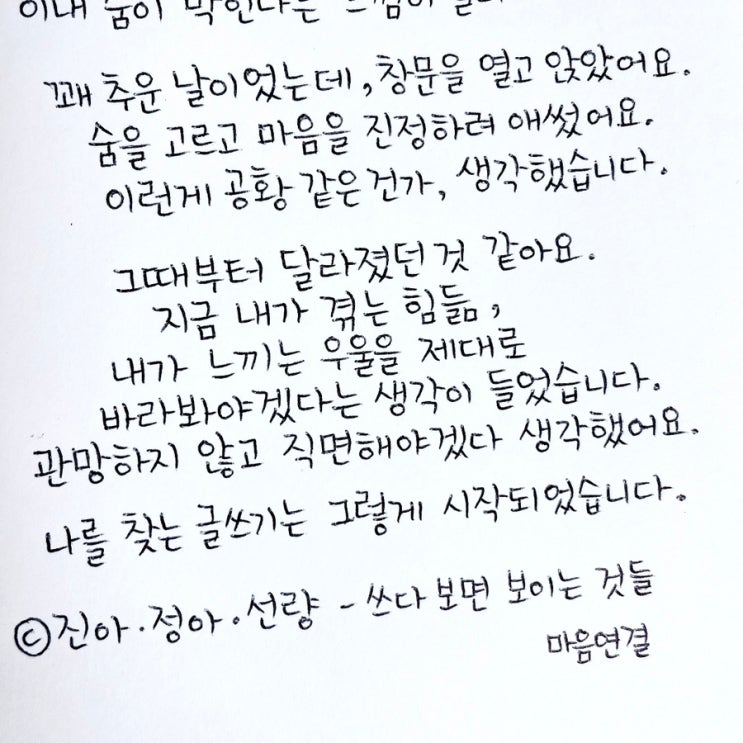 이내 숨이 막힌다는
꽤 추운 날이었는데, 창문을 열고 앉았어요.
숨을 고르고 마음을 진정하려 애썼어요.
이런게 공황 같은건가, 생각했습니다.
그때부터 달라졌던 것 같아요.
지금 내가 겪는 힘듦,
내가 느끼는 우울을 제대로
바라봐야겠다는 생각이 들었습니다.
관망하지 않고 직면해야겠다 생각했어요.
나를 찾는 글쓰기는 그렇게 시작되었습니다.
©진아·정아·선량 - 쓰다 보면 보이는 것들
마음연결